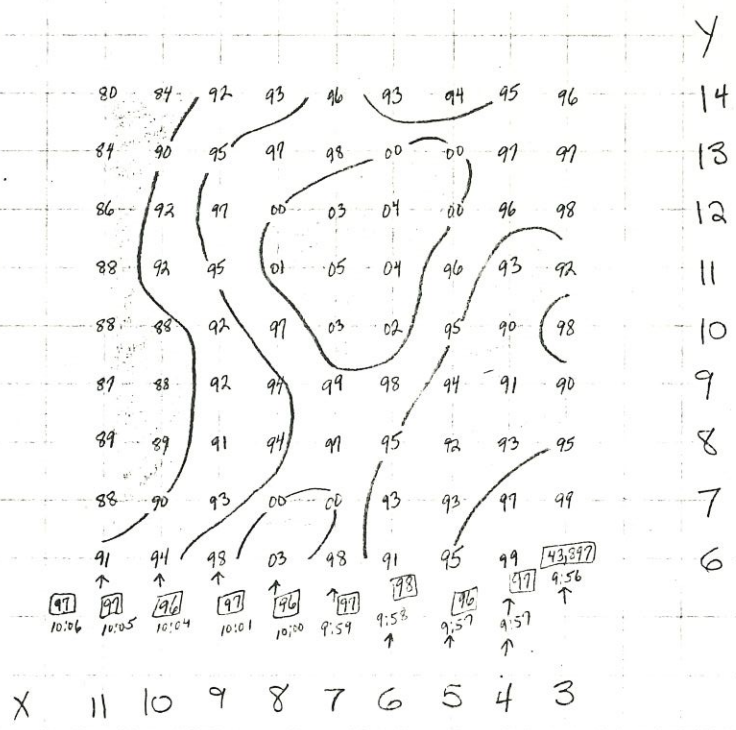 Y
80 84 92 93 96 93 94 95 96 14
84 90 95 97 98 00 00 97 97 13
86 92 97 00 03 04 00 96 98 12
88 92 95 01 05 04 96 93 92 11
88 88 92 97 03 02 95 90 98 10
87 88 92 94 99 98 94 91 90 9
89 89 91 94 97 95 92 93 95 8
88 90 93 00 00 93 93 97 99 7
91 94 98 03 98 91 95 99 43,897 6
97 97 96 97 96 97 98 96 97 9:56
10:06 10:05 10:04 10:01 10:00 9:59 9:58 9:57 9:57
X 11 10 9 8 7 6 5 4 3